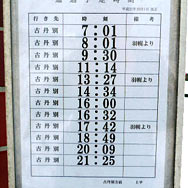 行き先 時刻 備考
古丹別 7:01
古丹別 8:01 羽幌より
古丹別 9:30
古丹別 11:14
古丹別 13:27 羽幌より
古丹別 14:34
古丹別 16:00
古丹別 16:32
古丹別 17:42 羽幌より
古丹別 18:49
古丹別 20:09
古丹別 21:25